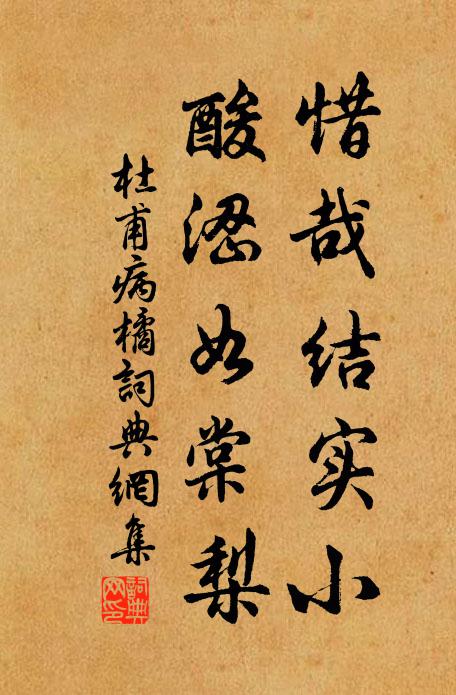 惜哉结实小
酸涩如棠梨
杜甫病橘詞典網集
詞典网印